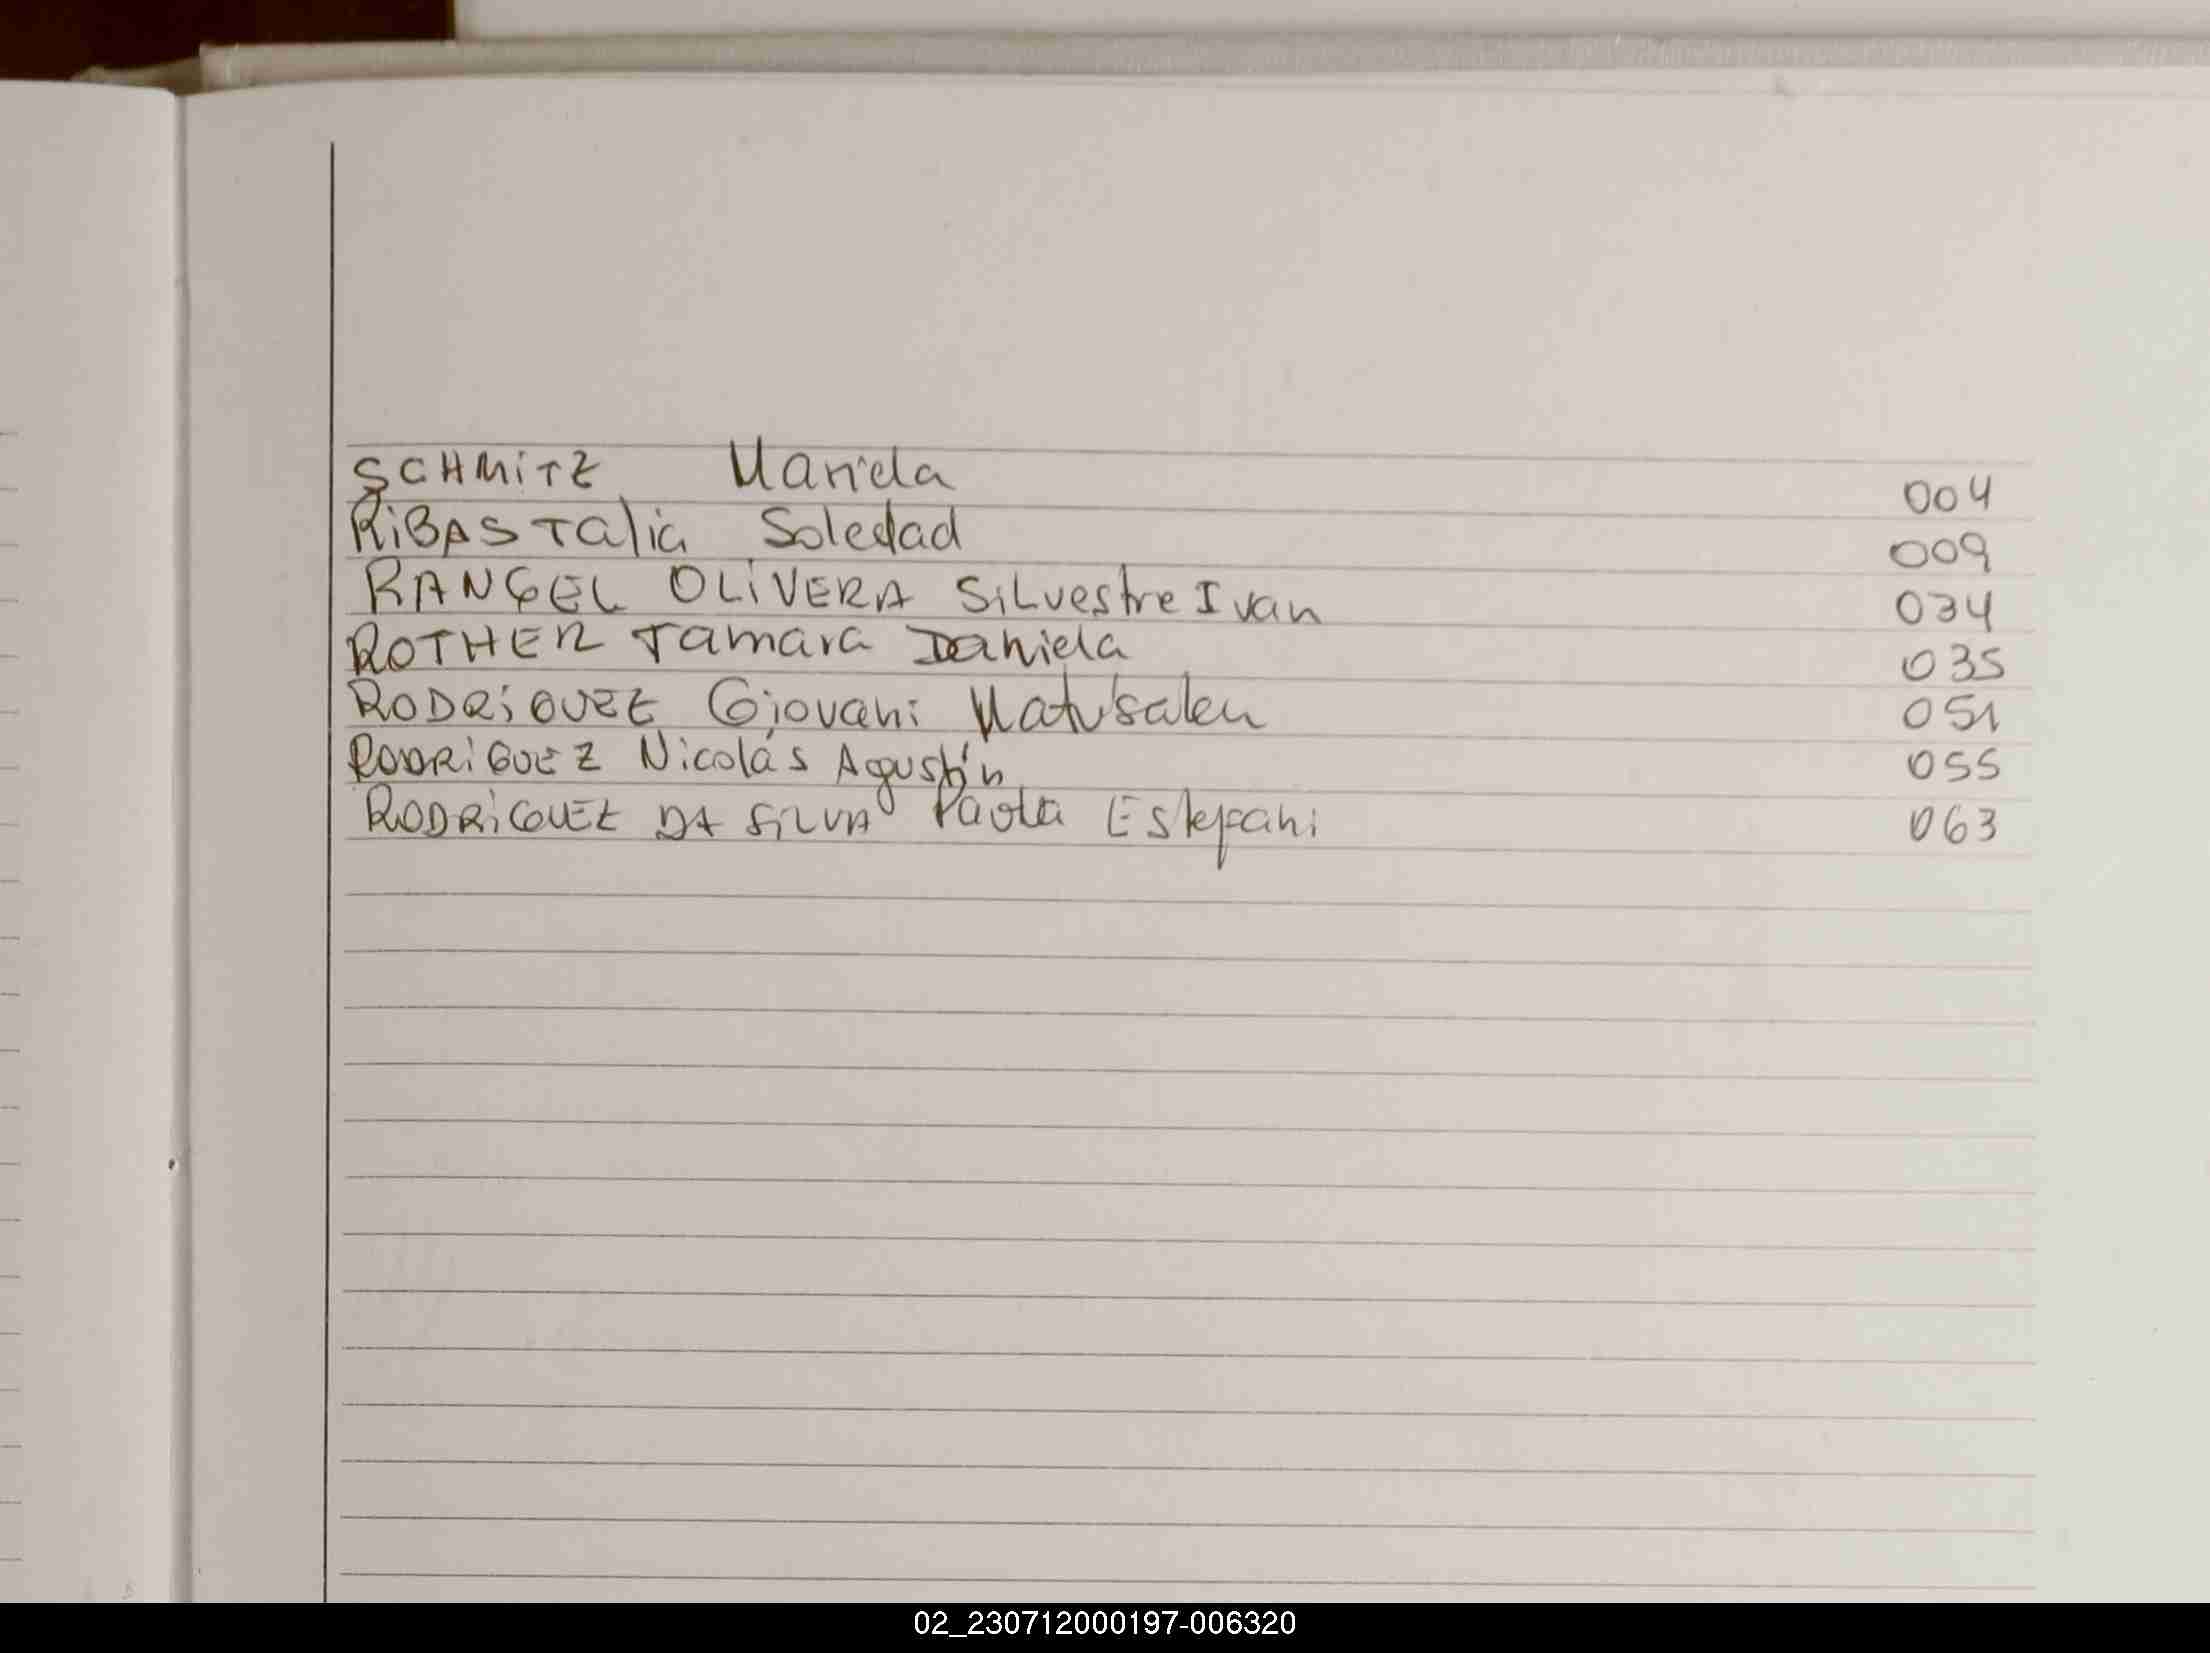 SCHMITZ Mariela 004
RIBAS Talia Soledad 009
RANGEL OLIVERA Silvestre Ivan 034
ROTHER Tamara Daniela 035
RODRIGUEZ Giovani Matusalen 051
RODRIGUEZ Nicolás Agustín 055
RODRIGUEZ DA SILVA Paola Estefani 063
02_230712000197-006320